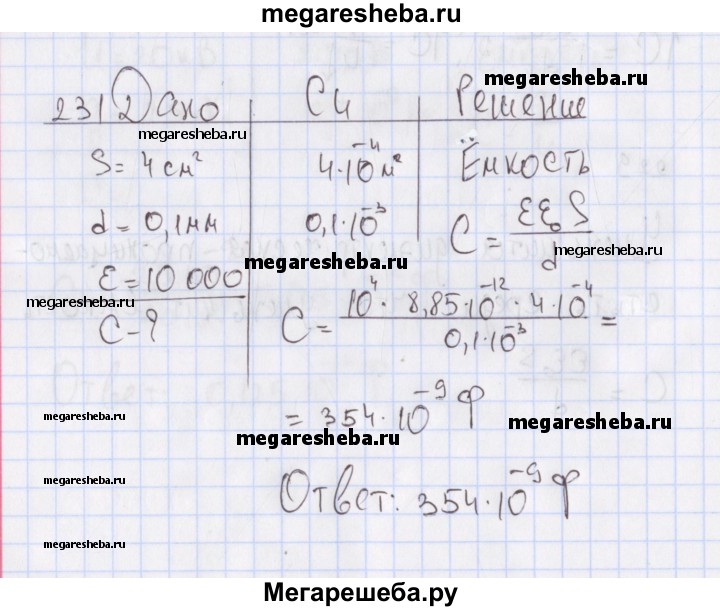 megaresheba.ru
megaresheba.ru
231 Дано Си Решение
megaresheba.ru
S = 4 см² 4·10⁻⁴ м² Ёмкость
d = 0,1 мм 0,1·10⁻³ C = εε₀S / d
megaresheba.ru
megaresheba.ru
ε = 10 000
megaresheba.ru
C - ? C = 10⁴ · 8,85·10⁻¹² · 4·10⁻⁴ / 0,1·10⁻³ =
= 354·10⁻⁹ Ф
megaresheba.ru
megaresheba.ru
megaresheba.ru
Ответ: 354·10⁻⁹ Ф
megaresheba.ru
megaresheba.ru
Мегарешеба.ру